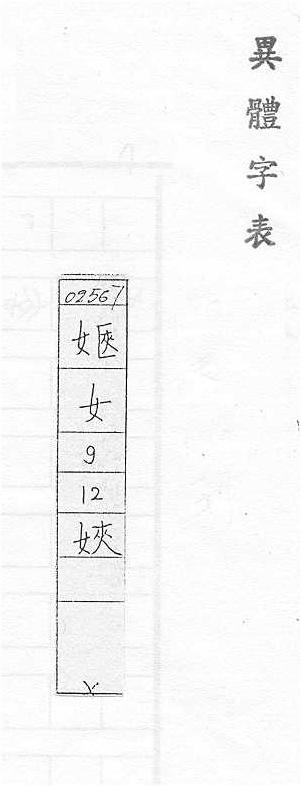 異體字表
02567
㛍
女
9
12
㛍